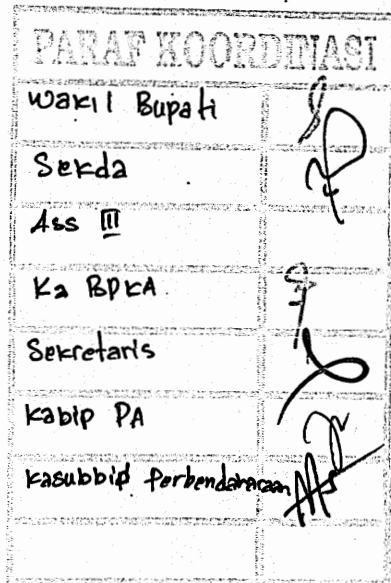 PARAF KOORDINASI
Wakil Bupati
Sekda
Ass III
Ka BPKA
Sekretaris
Kabid PA
Kasubbid Perbendaharaan